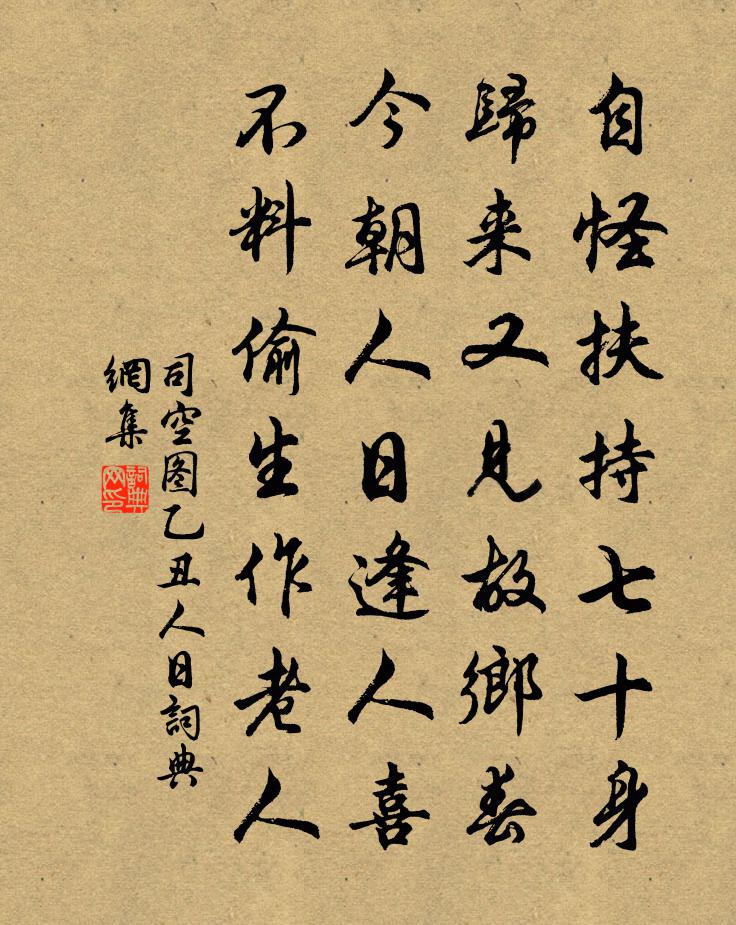 自怪扶持七十身
歸来又見故鄉春
今朝人日逢人喜
不料偷生作老人
司空图乙丑人日詞典
網集
詞典
网印